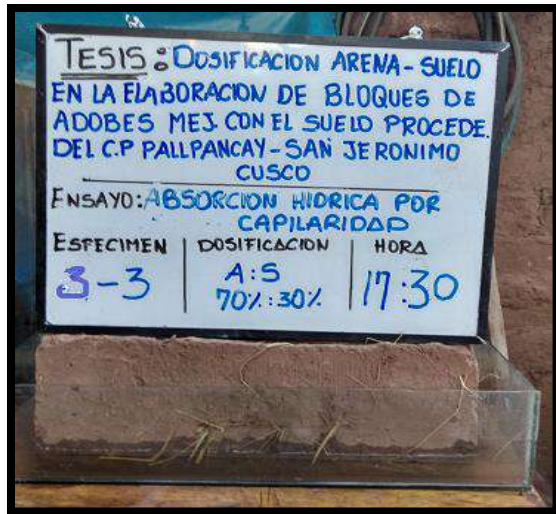 TESIS: DOSIFICACION ARENA - SUELO
EN LA ELABORACION DE BLOQUES DE
ADOBES MEJ. CON EL SUELO PROCEDE.
DEL C.P PALLPANCAY - SAN JERONIMO
CUSCO
ENSAYO: ABSORCION HIDRICA POR
CAPILARIDAD
ESPECIMEN DOSIFICACION HORA
3-3 A:S 17:30
70%:30%